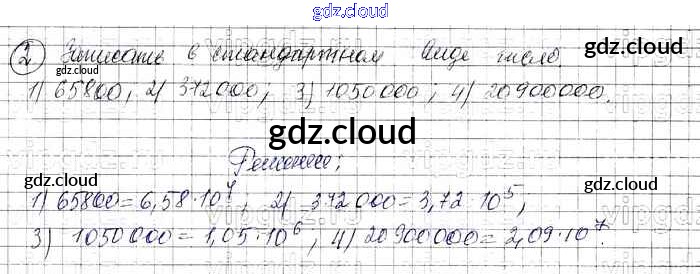 gdz.cloud
2 Записать в стандартном виде число
gdz.cloud
gdz.cloud
1) 65800, 2) 372000, 3) 1050000; 4) 20900000.
gdz.cloud
gdz.cloud
gdz.cloud
Решение:
gdz.cloud
gdz.cloud
1) 65800=6,58·10⁴, 2) 372000=3,72·10⁵,
gdz.cloud
3) 1050000=1,05·10⁶, 4) 20900000=2,09·10⁷.